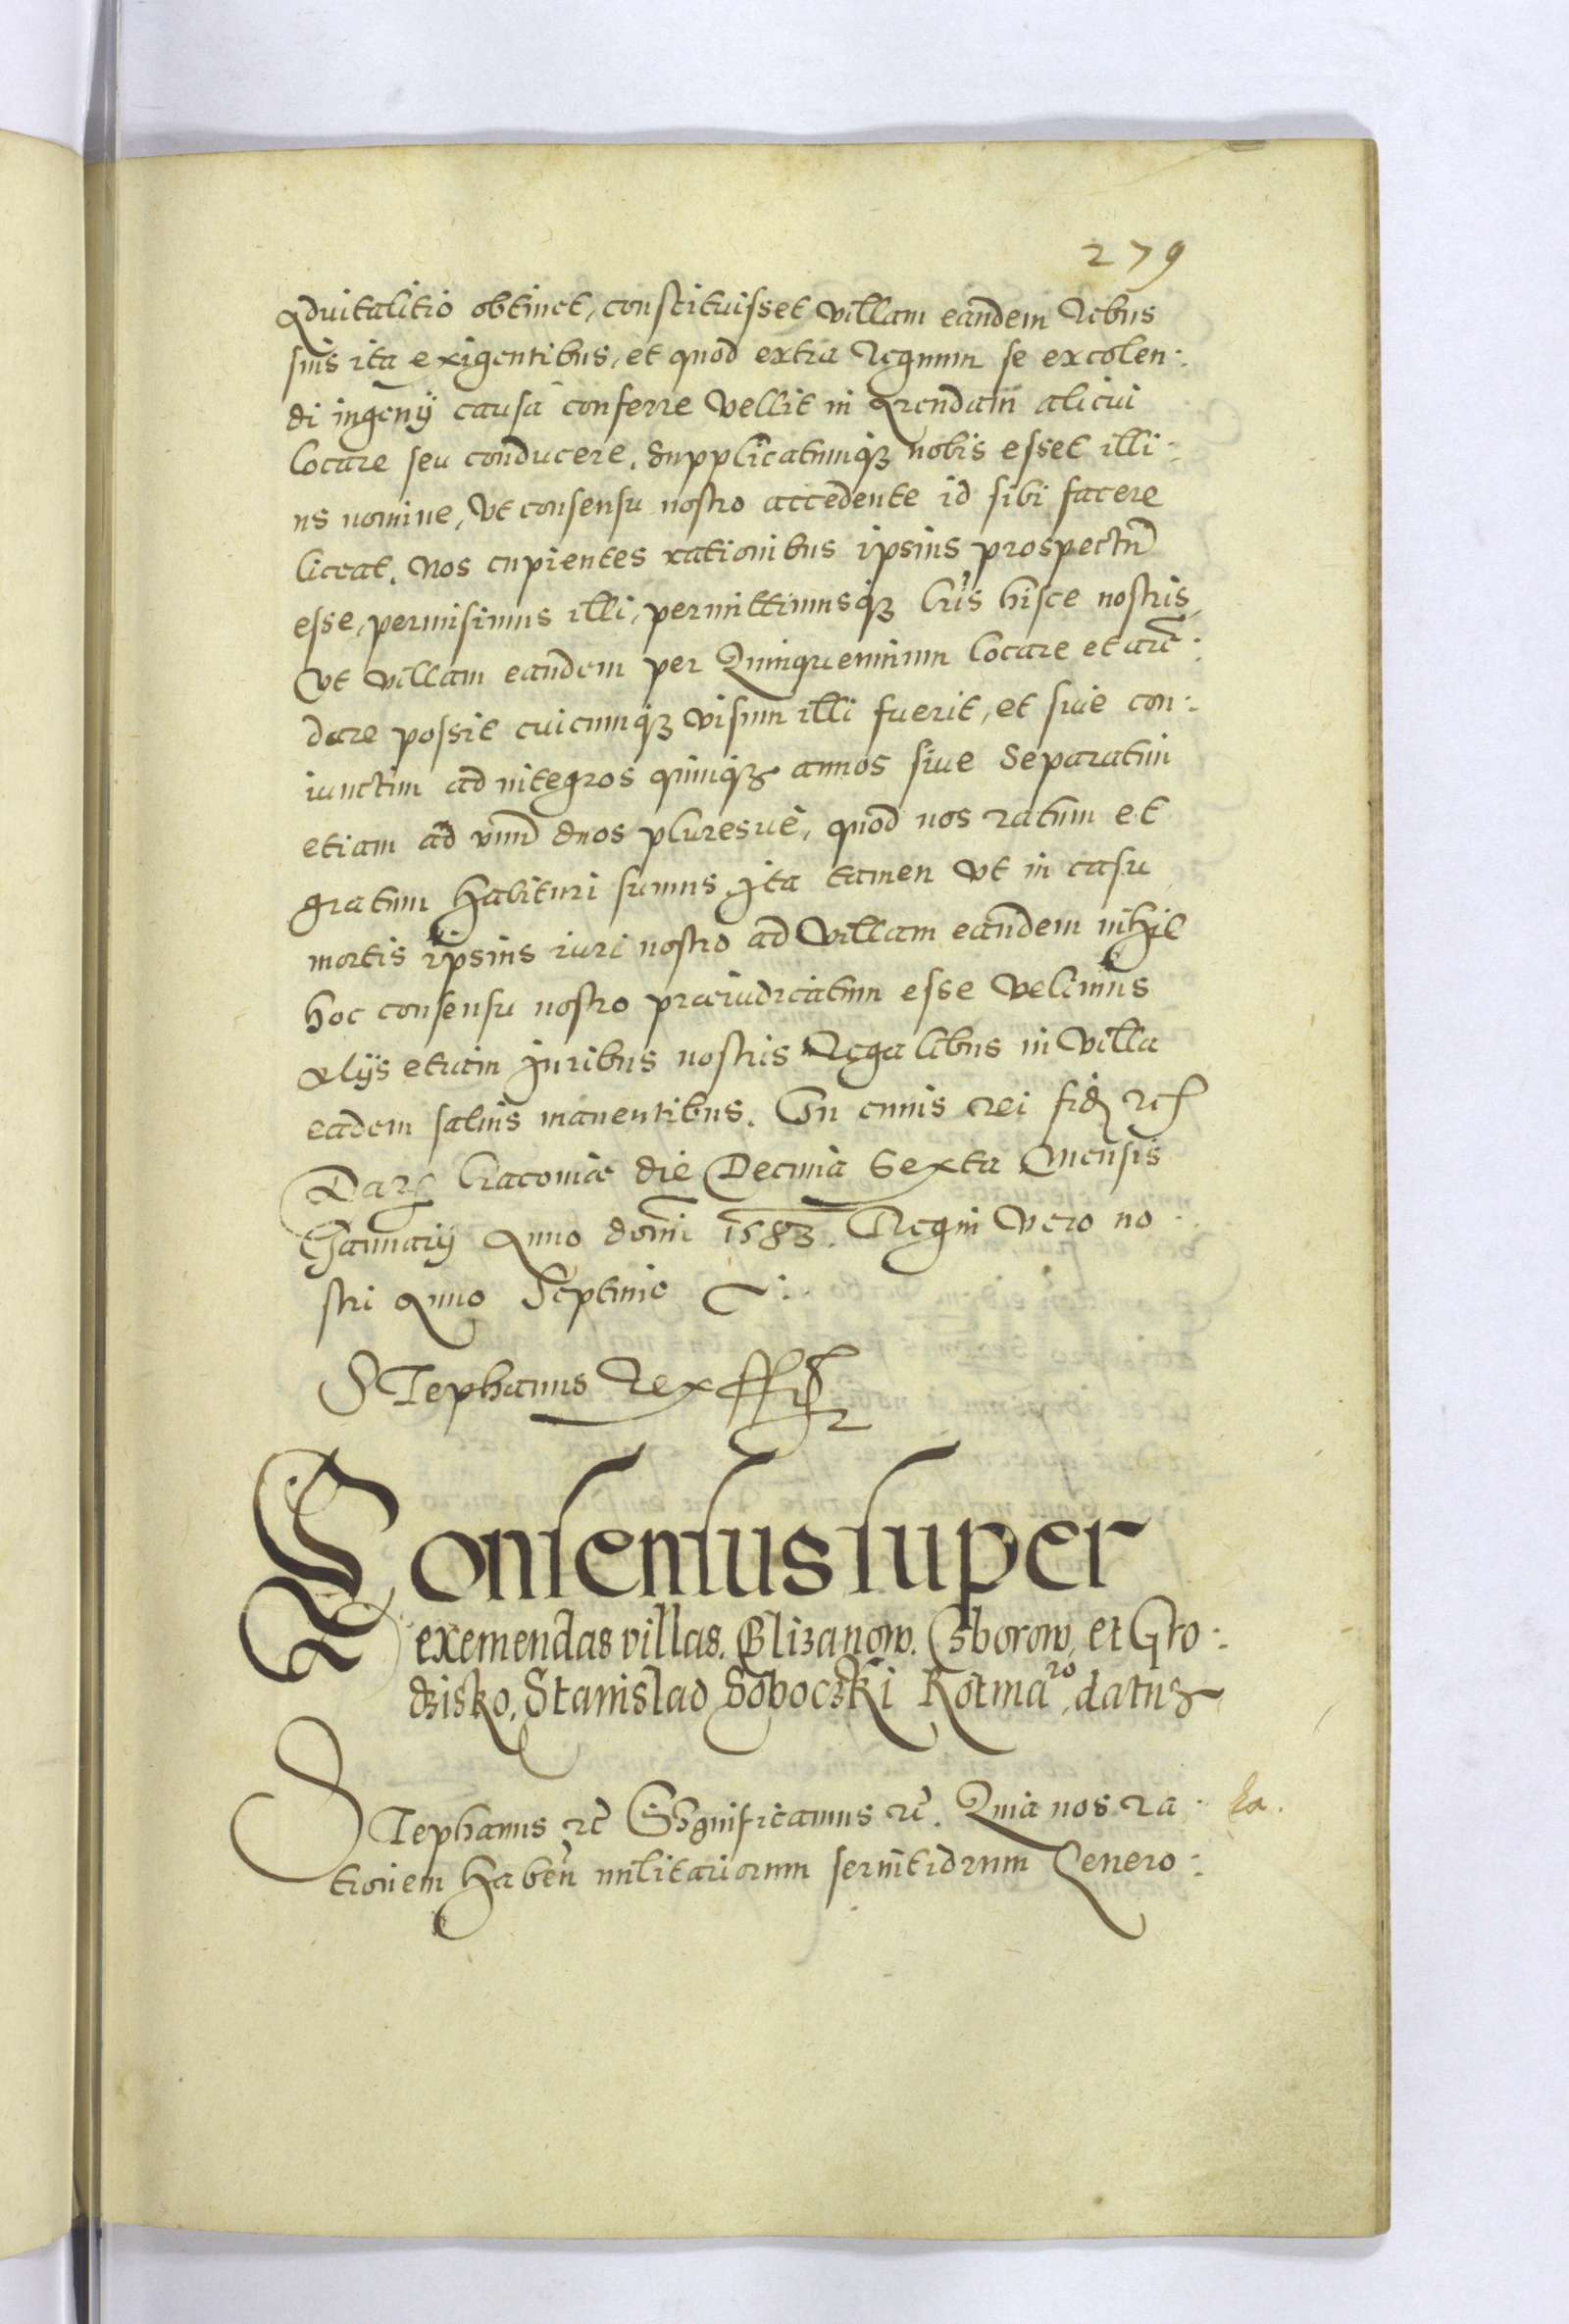 279
Aduitalitio obtinet, constituisset villam eandem Rebus
suis ita exigentibus, et quod extra Regnum se excolen:
di ingenij causa conferre vellit in Arendam alicui
locare seu conducere. Supplicatumq3 nobis esset illi:
us nomine, Vt consensu nostro accedente id sibi facere
liceat. Nos cupientes rationibus ipsius prospectū
esse, permisimus illi, permittimusq3 lr̄is hisce nostris,
Vt villam eandem per Quinquennium locare et arē:
dare possit cuicumq3 visum illi fuerit, et siue con:
iunctim ad integros quinq3 annos siue Separatim
etiam ad vnū duos pluresue, quod nos ratum et
gratum habituri sumus. Ita tamen vt in casu
mortis ipsius iuri nostro ad villam eandem nihil
hoc consensu nostro præiudicatum esse velimus
Alijs etiam Iuribus nostris Regalibus in villa
eadem saluis manentibus. In cuius rei fid rc
Dat Cracouiæ die Decima Sexta Mensis
Ianuarij Anno domi 1583. Regni vero no:
stri Anno Septimo
Stephanus Rex
Consensus super
exemendas villas. Blizanow. Czborow. et Gro:
dzisko. Stanislao Soboczki Rotmaro datus
Stephanus rc Significamus rc. Quia nos ra
tionem haben militariorum seruitiorum Genero: